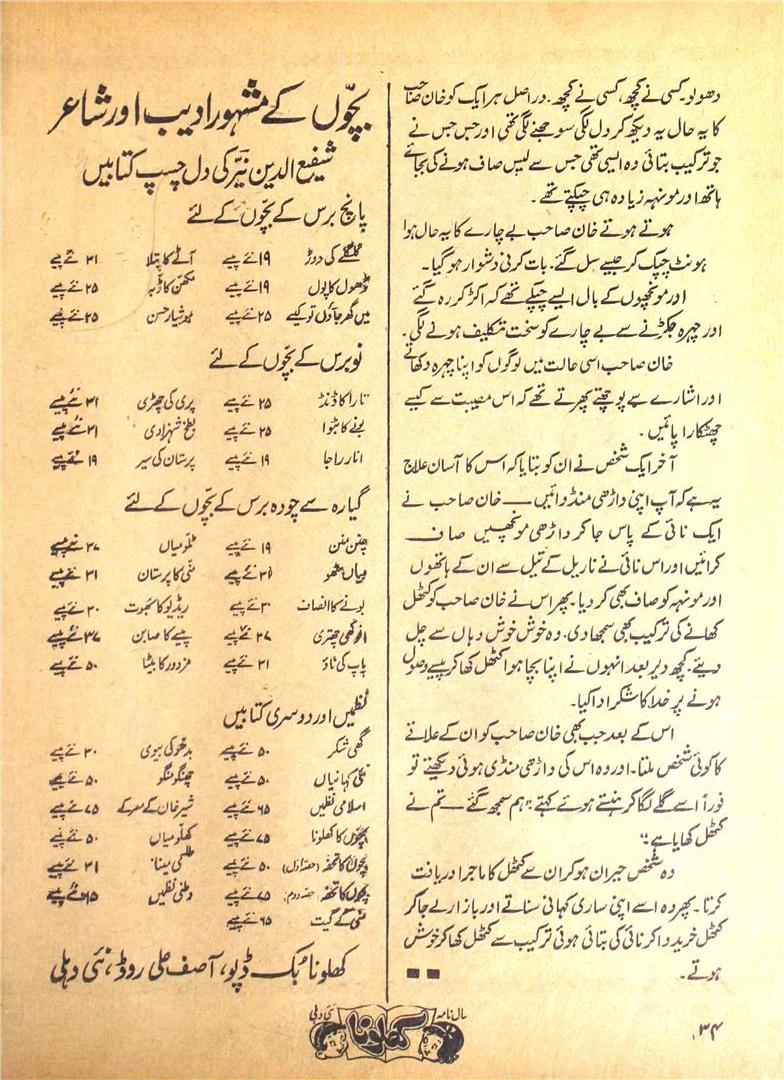 دھولو۔ کسی نے کچھ، کسی نے کچھ۔ دراصل ہر ایک کو خان صاحب
کا یہ حال یہ دیکھ کر دل لگی سوجھنے لگی تھی اور جس جس نے
جو ترکیب بتائی وہ ایسی تھی جس سے لیس صاف ہونے کی بجائے
ہاتھ اور مونہہ زیادہ ہی چپکتے تھے۔
ہوتے ہوتے خان صاحب بے چارے کا یہ حال ہوا
ہونٹ چپک کر جیسے سل گئے۔ بات کرنی دشوار ہو گیا۔
اور مونچھوں کے بال ایسے چپکے تھے کہ اکڑ کر رہ گئے
اور چہرہ جکڑنے سے بے چارے کو سخت تکلیف ہونے لگی۔
خان صاحب اسی حالت میں لوگوں کو اپنا چہرہ دکھاتے
اور اشارے سے پوچھتے پھرتے تھے کہ اس مصیبت سے کیسے
چھٹکارا پائیں۔
آخر ایک شخص نے ان کو بتایا کہ اس کا آسان علاج
یہ ہے کہ آپ اپنی داڑھی منڈوائیں —— خان صاحب نے
ایک نائی کے پاس جا کر داڑھی مونچھیں صاف
کرائیں اور اس نائی نے ناریل کے تیل سے ان کے ہاتھوں
اور مونہہ کو صاف بھی کر دیا۔ پھر اس نے خان صاحب کو کٹھل
کھانے کی ترکیب بھی سمجھا دی۔ وہ خوش خوش وہاں سے چل
دیئے۔ کچھ دیر بعد انہوں نے اپنا بچا ہوا کٹھل کھا کر پیسے وصول
ہونے پر خدا کا شکر ادا کیا۔
اس کے بعد جب بھی خان صاحب کو ان کے علاقے
کا کوئی شخص ملتا۔ اور وہ اس کی داڑھی منڈی ہوئی دیکھتے تو
فوراً اسے گلے لگا کر ہنستے ہوئے کہتے "ہم سمجھ گئے — تم نے
کٹھل کھایا ہے"
وہ شخص حیران ہو کر ان سے کٹھل کا ماجرا دریافت
کرتا۔ پھر وہ اسے اپنی ساری کہانی سناتے اور بازار لے جا کر
کٹھل خریدوا کر نائی کی بتائی ہوئی ترکیب سے کٹھل کھا کر خوش
ہوتے۔
بچّوں کے مشہور ادیب اور شاعر
شفیع الدین نیّر کی دل چسپ کتابیں
پانچ برس کے بچّوں کے لئے
گلگلے کی دوڑ ۱۹ نئے پیسے آٹے کا پتلا ۳۱ نئے پیسے
ڈھول کا پول ۱۹ نئے پیسے مکھن کا ڈبہ ۲۵ نئے پیسے
میں گھر جاؤں تو کیسے ۲۵ نئے پیسے ہوشیار حسن ۲۵ نئے پیسے
نو برس کے بچّوں کے لئے
تارا کا ڈنڈ ۲۵ نئے پیسے پری کی چھڑی ۳۱ نئے پیسے
بنے کا بٹوا ۲۵ نئے پیسے بطخ شہزادی ۳۱ نئے پیسے
انار راجا ۱۹ نئے پیسے پرستان کی سیر ۱۹ نئے پیسے
گیارہ سے چودہ برس کے بچّوں کے لئے
چھنن منن ۱۹ نئے پیسے ٹلّو میاں ۳۷ نئے پیسے
میاں مٹھو ۳۱ نئے پیسے منّی کا پرستان ۳۱ نئے پیسے
بونے کا انصاف ۳۰ نئے پیسے ریڈیو کا بھوت ۳۰ نئے پیسے
انوکھی چھتری ۳۷ نئے پیسے پیسے کا صابن ۳۷ نئے پیسے
پاپ کی ناؤ ۳۱ نئے پیسے مزدور کا بیٹا ۵۰ نئے پیسے
نظمیں اور دوسری کتابیں
گھی شکر ۵۰ نئے پیسے بدھو کی بیوی ۳۰ نئے پیسے
نئی کہانیاں ۵۰ نئے پیسے چنگو منگو ۵۰ نئے پیسے
اسلامی نظمیں ۶۵ نئے پیسے شیر خان کے معرکے ۷۵ نئے پیسے
بچّوں کا کھلونا ۷۵ نئے پیسے کھلّو میاں ۵۰ نئے پیسے
بچّوں کا تحفہ (حصّہ اوّل) ۵۰ نئے پیسے طلسمی مینا ۳۱ نئے پیسے
بچّوں کا تحفہ (حصّہ دوم) ۷۵ نئے پیسے وطنی نظمیں ۶۵ نئے پیسے
منّی کے گیت ۶۵ نئے پیسے
کھلونا بُک ڈپو، آصف علی روڈ، نئی دہلی
سالنامہ کھلونا نئی دہلی
۳۴